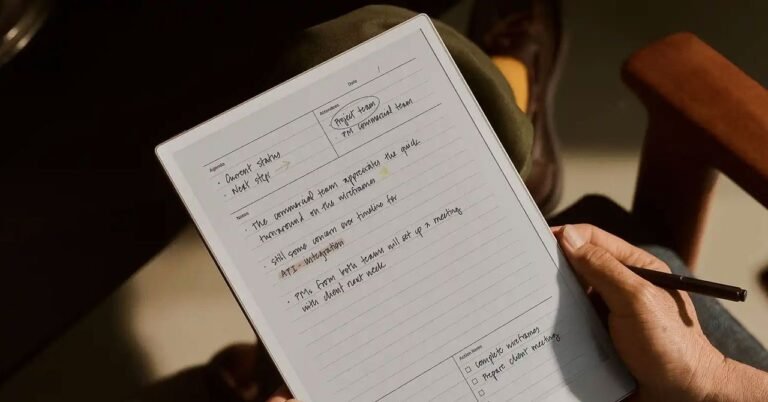 Date /
Agenda
• Current status
• Next steps →
Attendees
Project team
PM Commercial team
Notes
• The commercial team appreciates the quick
turnaround on the wireframes
• still some concern over timeline for
API - integration
• PMs from both teams will set up a meeting
with client next week
Action items
□ complete wireframes
□ Prepare client meeting
□